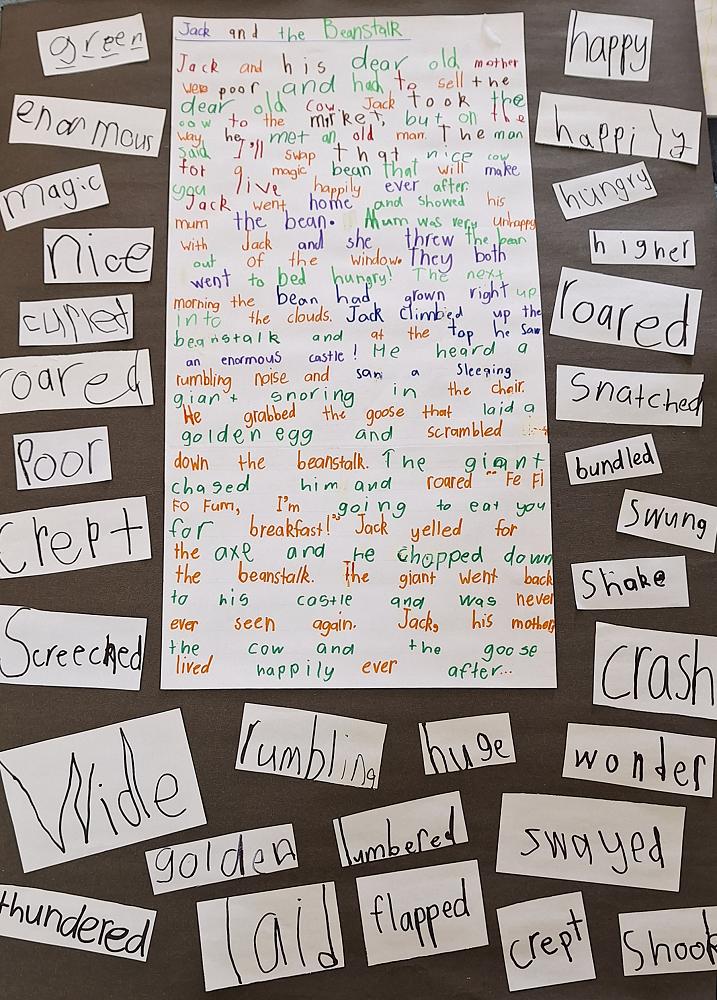 Jack and the Beanstalk
Jack and his dear old mother
were poor and had to sell the
dear old cow. Jack took the
cow to the market, but on the
way he met an old man. The man
said I'll swap that nice cow
for 1 magic bean that will make
you live happily ever after.
Jack went home and showed his
mum the bean. Mum was very unhappy
with Jack and she threw the bean
out of the window. They both
went to bed hungry! The next
morning the bean had grown right up
into the clouds. Jack Climbed up the
beanstalk and at the top he saw
an enormous castle! He heard a
rumbling noise and saw a sleeping
giant snoring in the chair.
He grabbed the goose that laid a
golden egg and scrambled
down the beanstalk. The giant
chased him and roared "Fe Fi
Fo Fum, I'm going to eat you
for breakfast!" Jack yelled for
the axe and He chopped down
the beanstalk. The giant went back
to his castle and was never
ever seen again. Jack, his mother,
the cow and the goose
lived happily ever after...
green
enormous
magic
nice
curled
roared
Poor
Crept
Screeched
Wide
thundered
happy
happily
hungry
higher
roared
Snatched
bundled
swung
Shake
crash
wonder
rumbling
huge
golden
lumbered
swayed
laid
flapped
crept
Shook